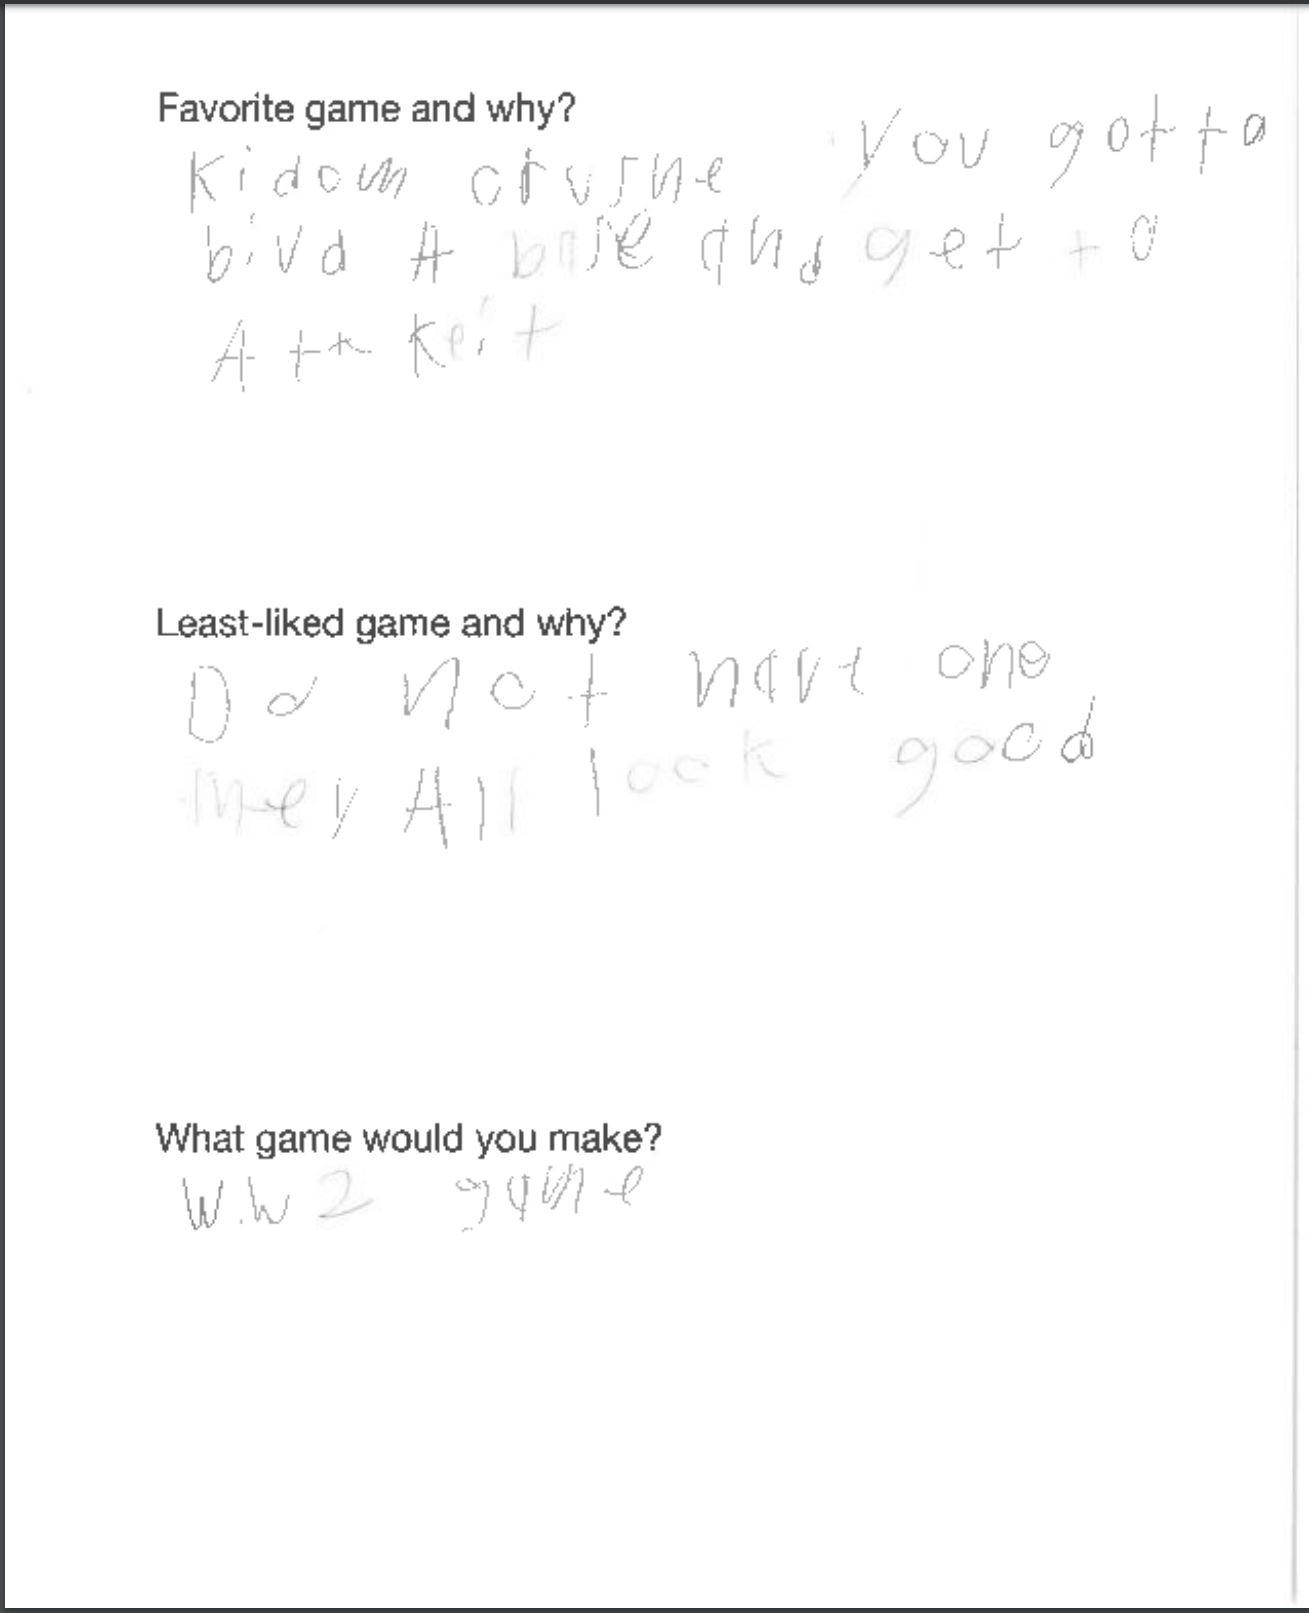 Favorite game and why?
Kidom crushe You got to
bivd A base and get to
A tta Keit
Least-liked game and why?
Do not have one
they All look good
What game would you make?
W.W 2 game